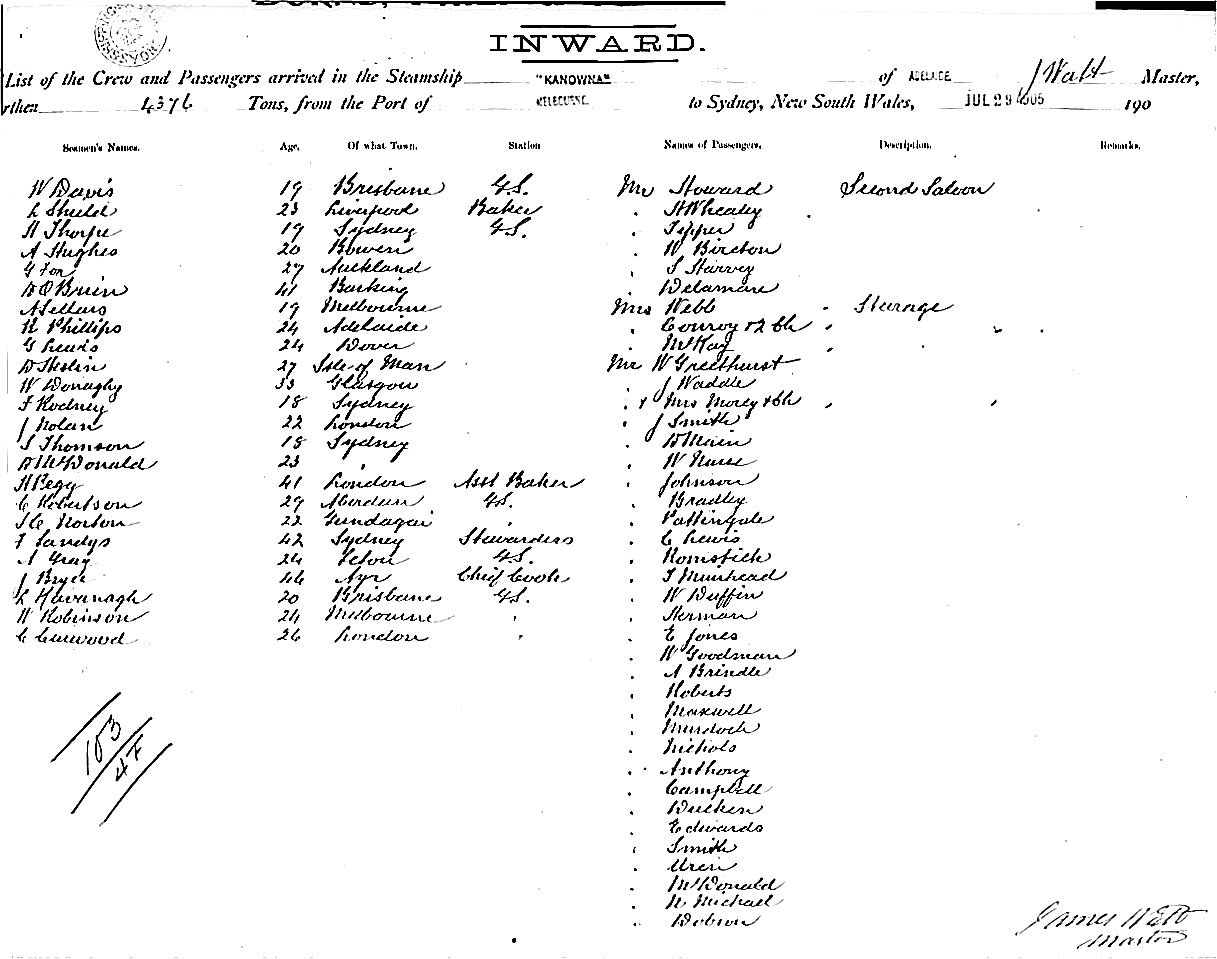 INWARD.
List of the Crew and Passengers arrived in the Steamship "KANOWNA" of ADELAIDE J Watt Master,
rthen 4376 Tons, from the Port of MELBOURNE to Sydney, New South Wales, JUL 29 1905 190
Seamen's Names. Age. Of what Town. Station Names of Passengers. Description. Remarks.
W Davis 19 Brisbane G.S. Mr Howard Second Saloon
L Shield 23 Liverpool Baker . H Whealey
H Thorpe 19 Sydney G.S. . Tipper
A Hughes 20 Bowen . W Bircton
G Fox 27 Auckland . S Harvey
D O'Brien 41 Barking . Delamare
A Sellars 19 Melbourne Mrs Webb . Steerage
N Phillips 24 Adelaide . Conroy & 2 Ch .
G Lewis 24 Dover . McKay .
D Heslin 27 Isle of Man Mr W Greethurst
W Donaghy 33 Glasgow . J Waddle
F Rodney 18 Sydney . & Mrs Morey & Ch .
J Nolan 22 London . J Smith
S Thomson 18 Sydney . D Main
D McDonald 23 . W Nurse
H Pegy 41 London Asst Baker . Johnson
C Robertson 29 Aberdeen G.S. . Bradley
J C Norton 22 Gundagai . Pattingale
F Sandys 42 Sydney Stewardess . C Lewis
A Gray 24 G.S. . Komstich
J Bryce 46 Ayr Chief Cook . T Muirhead
L Kavanagh 20 Brisbane G.S. . W Duffin
W Robinson 24 Melbourne . Herman
C Curwood 26 London . E Jones
. W Goodman
. A Brindle
. Roberts
. Maxwell
. Murdoch
. Nichols
. Anthony
. Campbell
. Edwards
. Smith
. Uren
. McDonald
. N Michael
. Dobson
103
47
James Watt
Master